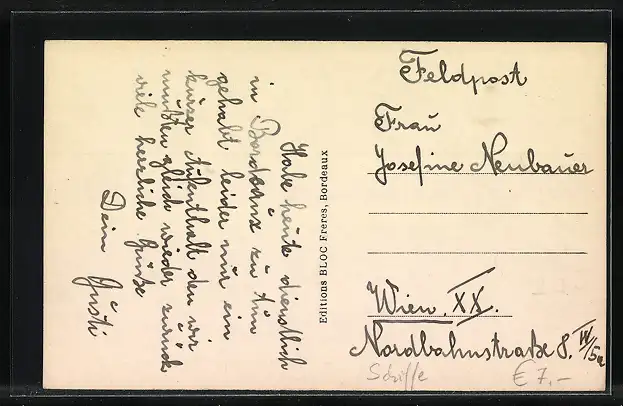 Habe heute dienstlich
in Bordeaux zu tun
gehabt leider nur ein
kurzer Aufenthalt den wir
mußten gleich wieder zurück
viele herzliche Grüße
Dein Gusti
Editions BLOC Freres, Bordeaux
Feldpost
Frau
Josefine Neubauer
Wien. XX.
Nordbahnstraße 8. IV/5a
Schiffe € 7,-